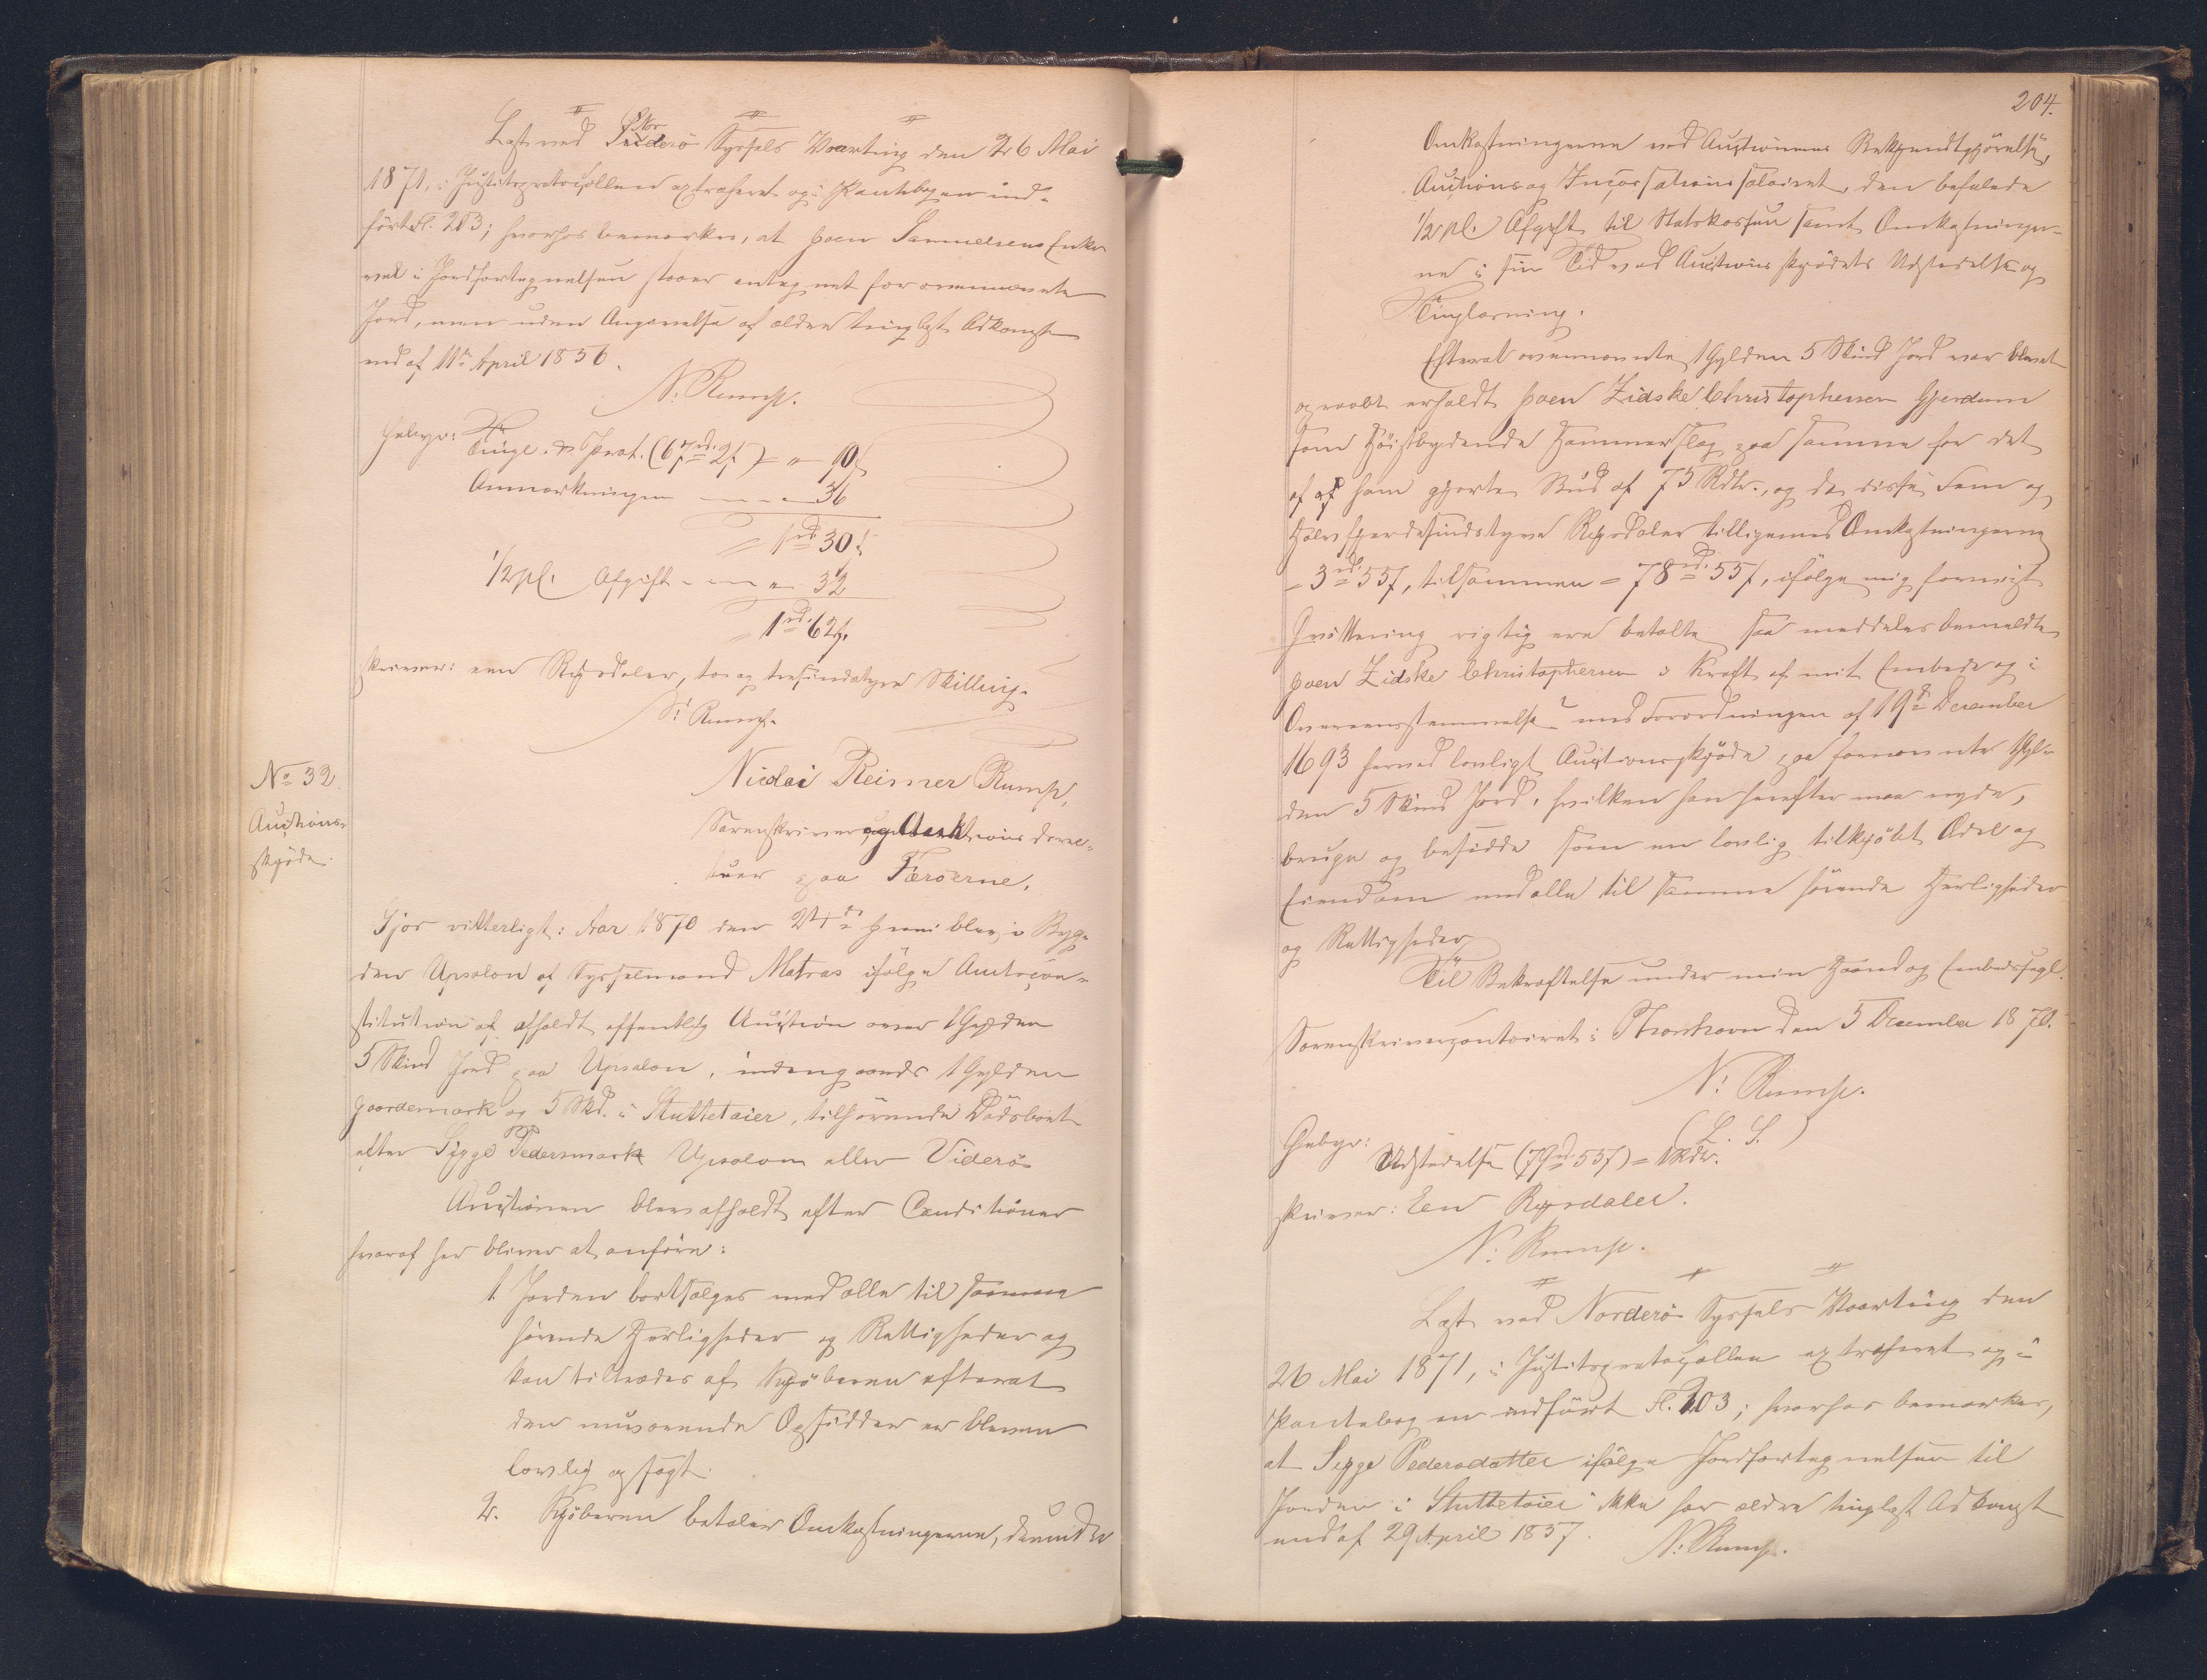 Læst ved Norderö Syssels Vaarting den 26 Mai
1871, i Justitsprotocollen extraheret og i Pantebogen ind-
fört Fl. 203; hvorhos bemærkes, at Joen Samuelsens Enke
vel i Jordfortegnelsen staaer antegnet for ovennævnte
Jord, men uden Angivelse af ældre tinglyst Adkomst
end af 11te April 1856.
N: Rump.
Gebyr: Tingl. & Prot. (67rd 2s) = " - 90s
Anmærkningen — " - 36
= 1rd 30s
1/2 pCt. Afgift — " - 32
= 1rd 62s.
skriver: een Rigsdaler, to og tresindstyve Skilling.
N: Rump.
No 32.
Auctions-
skjöde.
Nicolai Reimer Rump,
Sorenskriver og Auktions direc-
teur paa Færöerne,
Gjör vitterligt: Aar 1870 den 24de Juni blev i Byg-
den Upsalon af Sysselmand Matras ifölge Amtscon-
stitution af afholdt offentlig Auction over 1 Gylden
5 Skind Jord paa Upsalon, indengaards 1 Gylden
gaardemark og 5 Skd. i Stuttetaier, tilhörende Dödsboet
efter Sigge Pedersmark Upsalom eller Viderö.
Auctionen blev afholdt efter Conditioner
hvoraf her bliver at anföre:
1. Jorden bortsælges med alle til samme
hörende Herligheder og Rettigheder og
kan tiltrædes af Kjöberen efterat
den nuværende Opsidder er bleven
lovlig opsagt.
2. Kjöberen betaler Omkostningerne, derunder
204.
Omkostningerne ved Auctionens Bekjendtgjörelse,
Auctions og Incassations salairet, den befalede
1/2 pCt. Afgift til Statskassen samt Omkostninger-
ne i sin Tid ved Auctions skjödets Udstedelse og
Tinglæsning.
Efterat ovennævnte 1 Gylden 5 Skind Jord var blevet
opraabt erholdt Joen Zidske Christophersen Gjerdum
som Höistbydende Hammerslag paa samme for det
af af ham gjorte Bud af 75 Rdlr., og da disse Fem og
Halvfjerdesindstyve Rigsdaler tilligemed Omkostningerne
= 3rd 55s, tilsammen = 78rd 55s, ifölge mig foreviist
Qvittering rigtig ere betalte saa meddeles bemeldte
Joen Zidske Christophersen i Kraft af mit Embede og i
Overeensstemmelse med Forordningen af 19de December
1693 herved lovligt Auctionsskjöde paa fornævnte 1 Gyl-
den 5 Skind Jord, hvilken han herefter maa nyde,
bruge og besidde som en lovlig tilkjöbt Odel og
Eiendom med alle til samme hörende Herligheder
og Rettigheder.
Til Bekræftelse under min Haand og Embedssegl.
Sorenskrivercontoiret i Thorshavn den 5 December 1870.
N: Rump.
(L. S.)
Gebyr:
Udstedelse (79rd 55s) = 1 Rdlr.
skriver: Een Rigsdaler.
N: Rump.
Læst ved Norderö Syssels Vaarting den
26 Mai 1871, i Justitsprotocollen extraheret og i
Pantebogen indfört Fl. 203; hvorhos bemærkes,
at Sigge Pedersdatter ifölge Jordfortegnelsen til
Jorden i Stuttetaier ikke har ældre tinglæst Adkomst
end af 29 April 1857.
N: Rump.